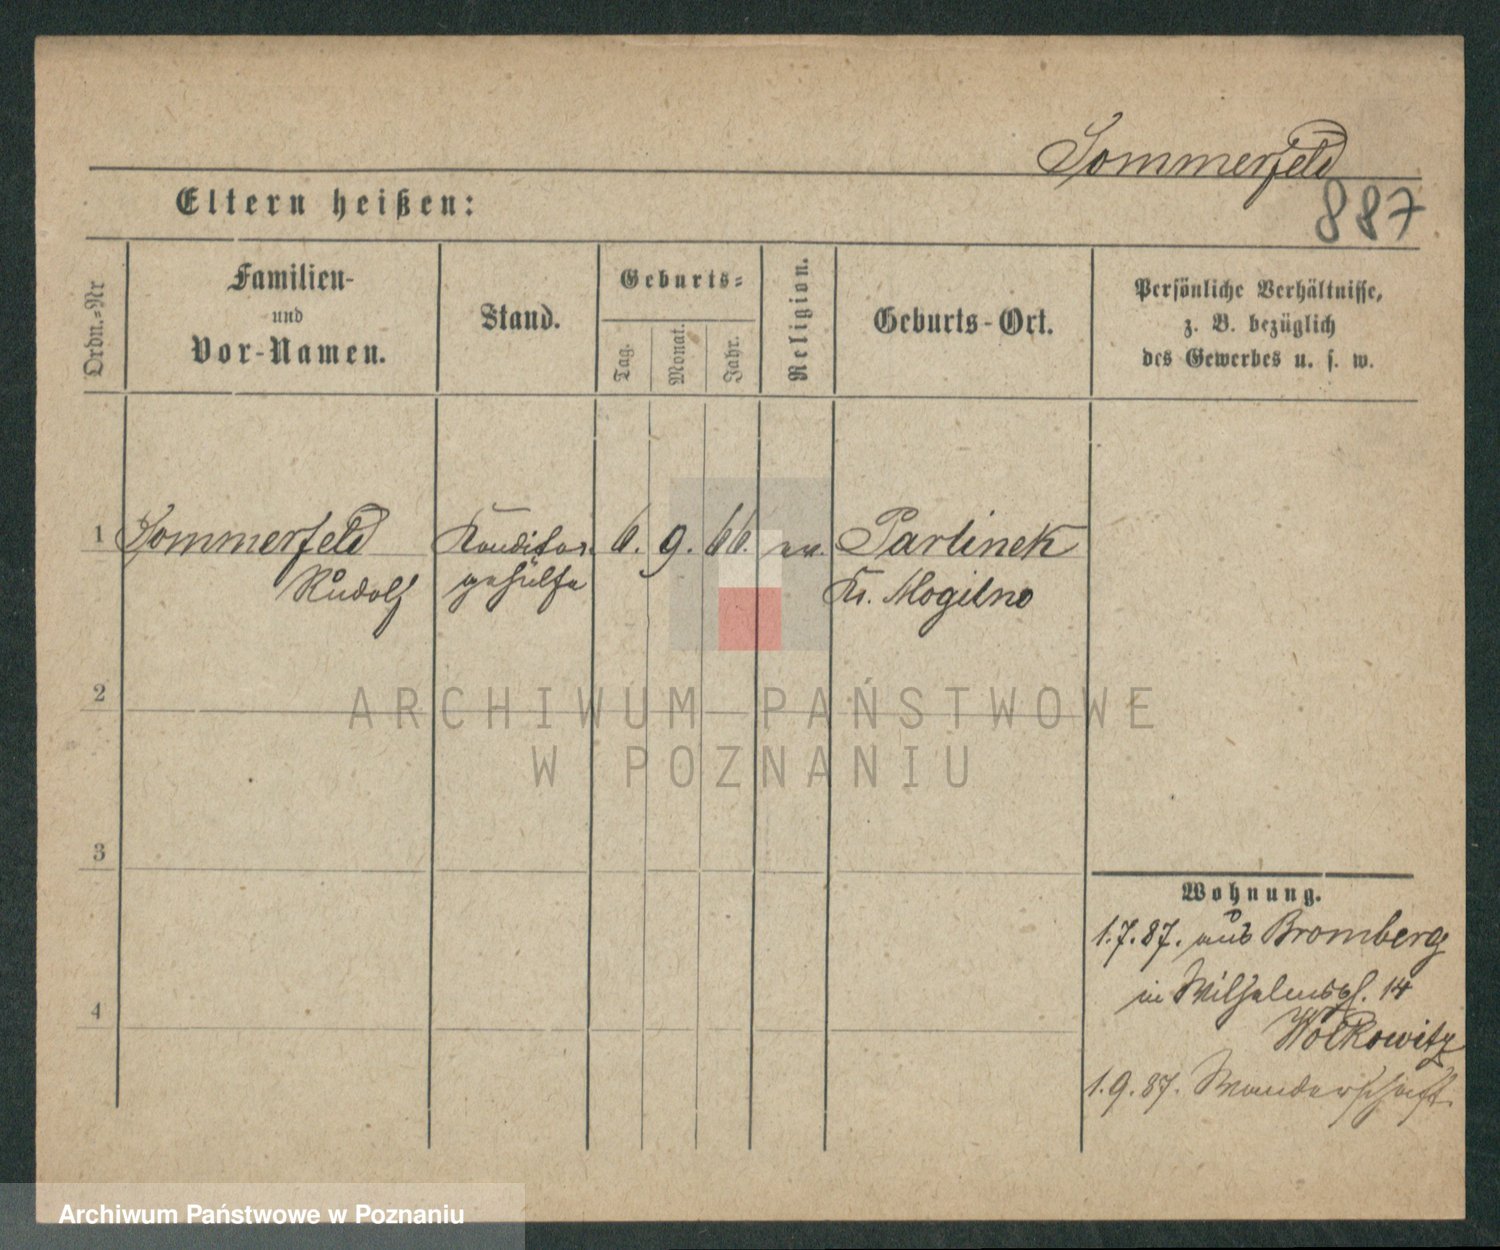 Sommerfeld
Eltern heißen:
887
Ordn.-Nr
Familien-
und
Vor-Namen.
Stand.
Geburts-
Tag.
Monat.
Jahr.
Religion.
Geburts-Ort.
Persönliche Verhältnisse,
z. B. bezüglich
des Gewerbes u. s. w.
1 Sommerfeld Konditor- 6. 9. 66. ev. Parlinek
Rudolf gehülfe Kr. Mogilno
2
ARCHIWUM PAŃSTWOWE
W POZNANIU
3
Wohnung.
1.7.87. aus Bromberg
in Wilhelmspl. 14
Wolkowitz
4
1.9.87. Wanderschaft.
Archiwum Państwowe w Poznaniu